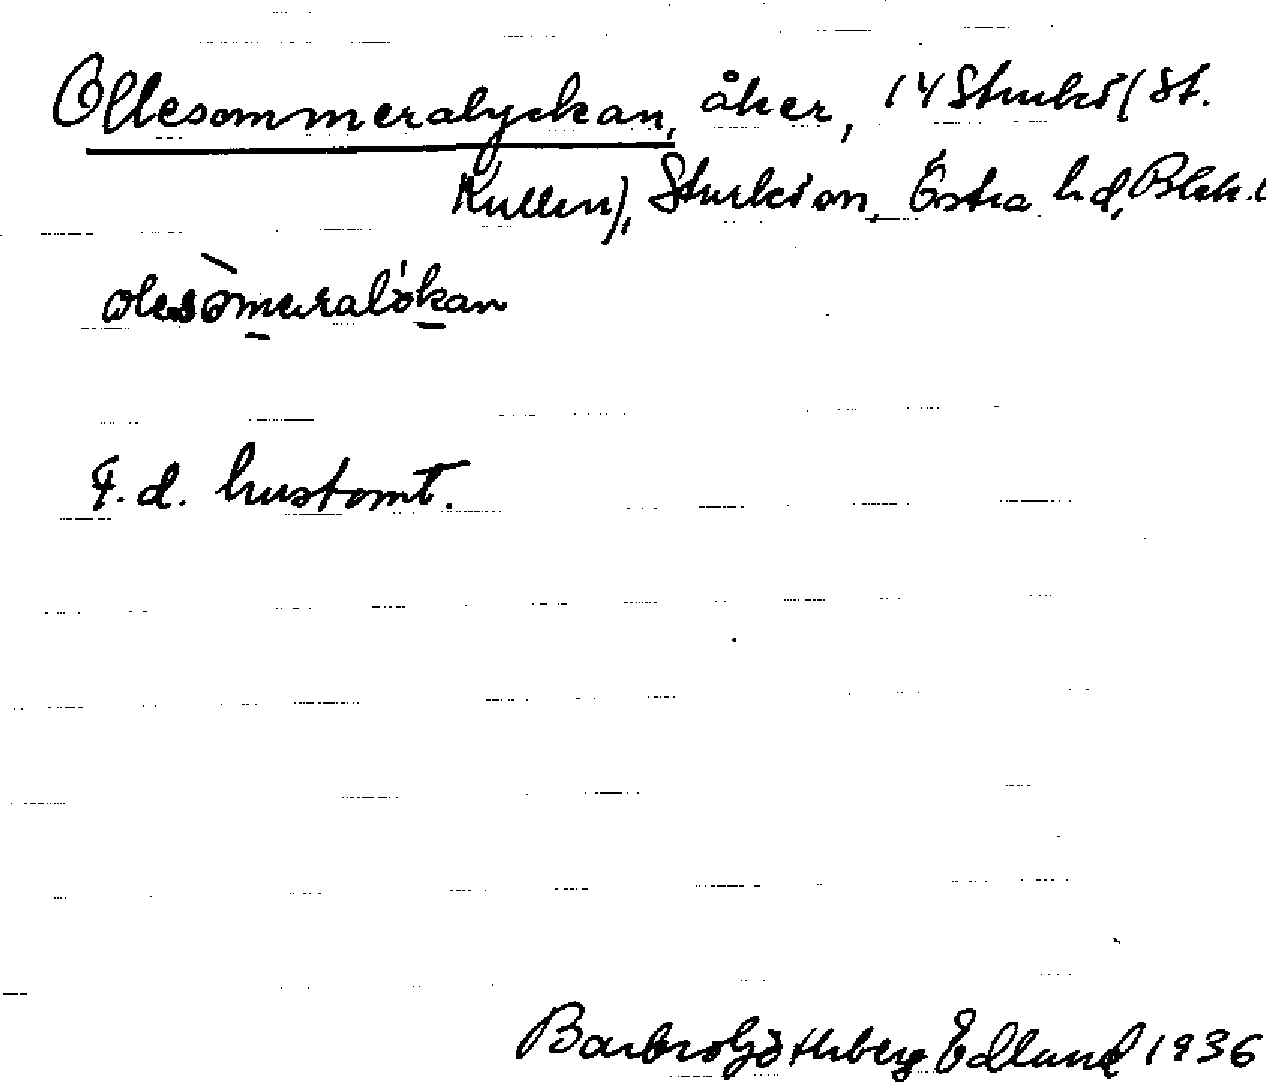 Ollesommeralyckan, åker, 14 Sturkö (St.
Kullen), Sturkö sn, Östra hd, Blek. l
olesòmeralö́kan
F. d. hustomt.
Barbro Götherberg Edlund 1936